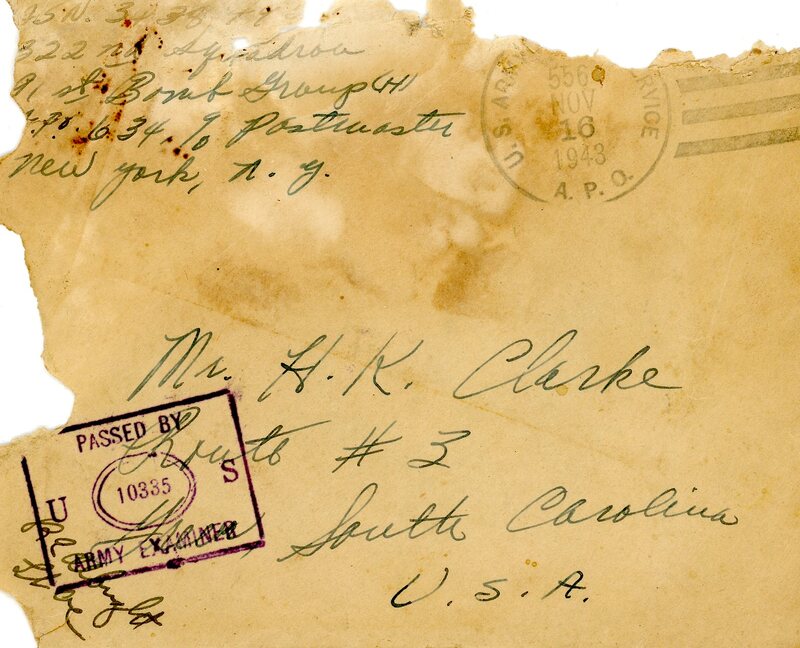 322nd Squadron
91st Bomb Group (H)
A.P.O. 634, % Postmaster
New York, N.Y.
U.S. ARMY SERVICE
556
NOV
16
1943
A. P. O.
Mr. H. K. Clarke
Route # 3
South Carolina
U. S. A.
PASSED BY
U 10335 S
ARMY EXAMINER